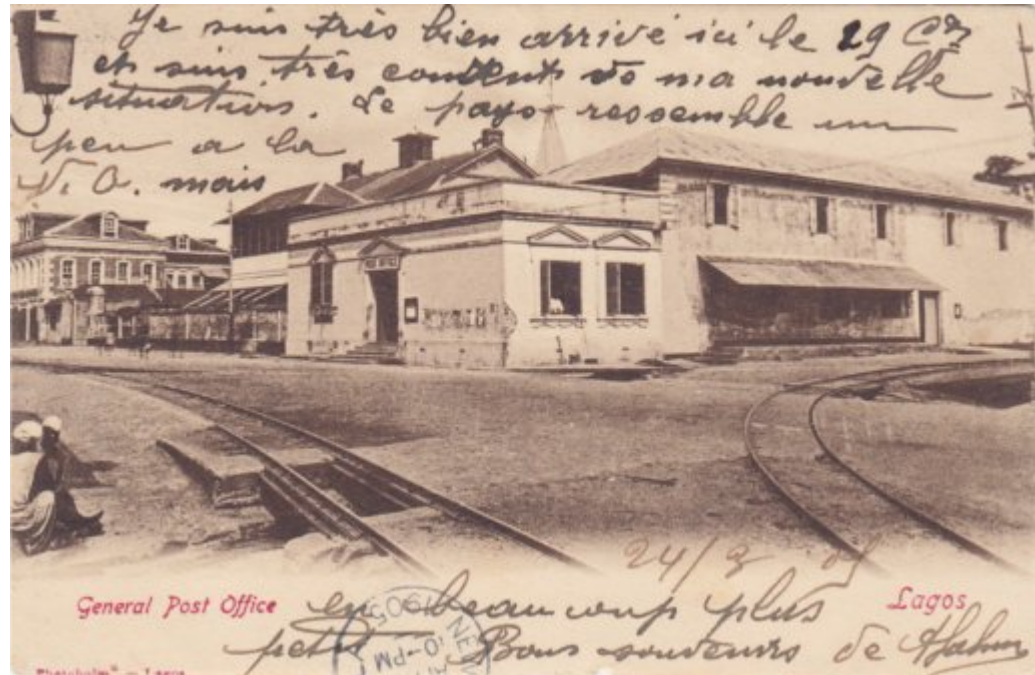 Je suis très bien arrivé ici le 29 Crt
et suis très content de ma nouvelle
situation. Le pays ressemble un
peu a la
N.O. mais
POST OFFICE
24/9 05
General Post Office
Lagos
en beaucoup plus
petit Bons souvenirs de
1905
10-PM
Lagos